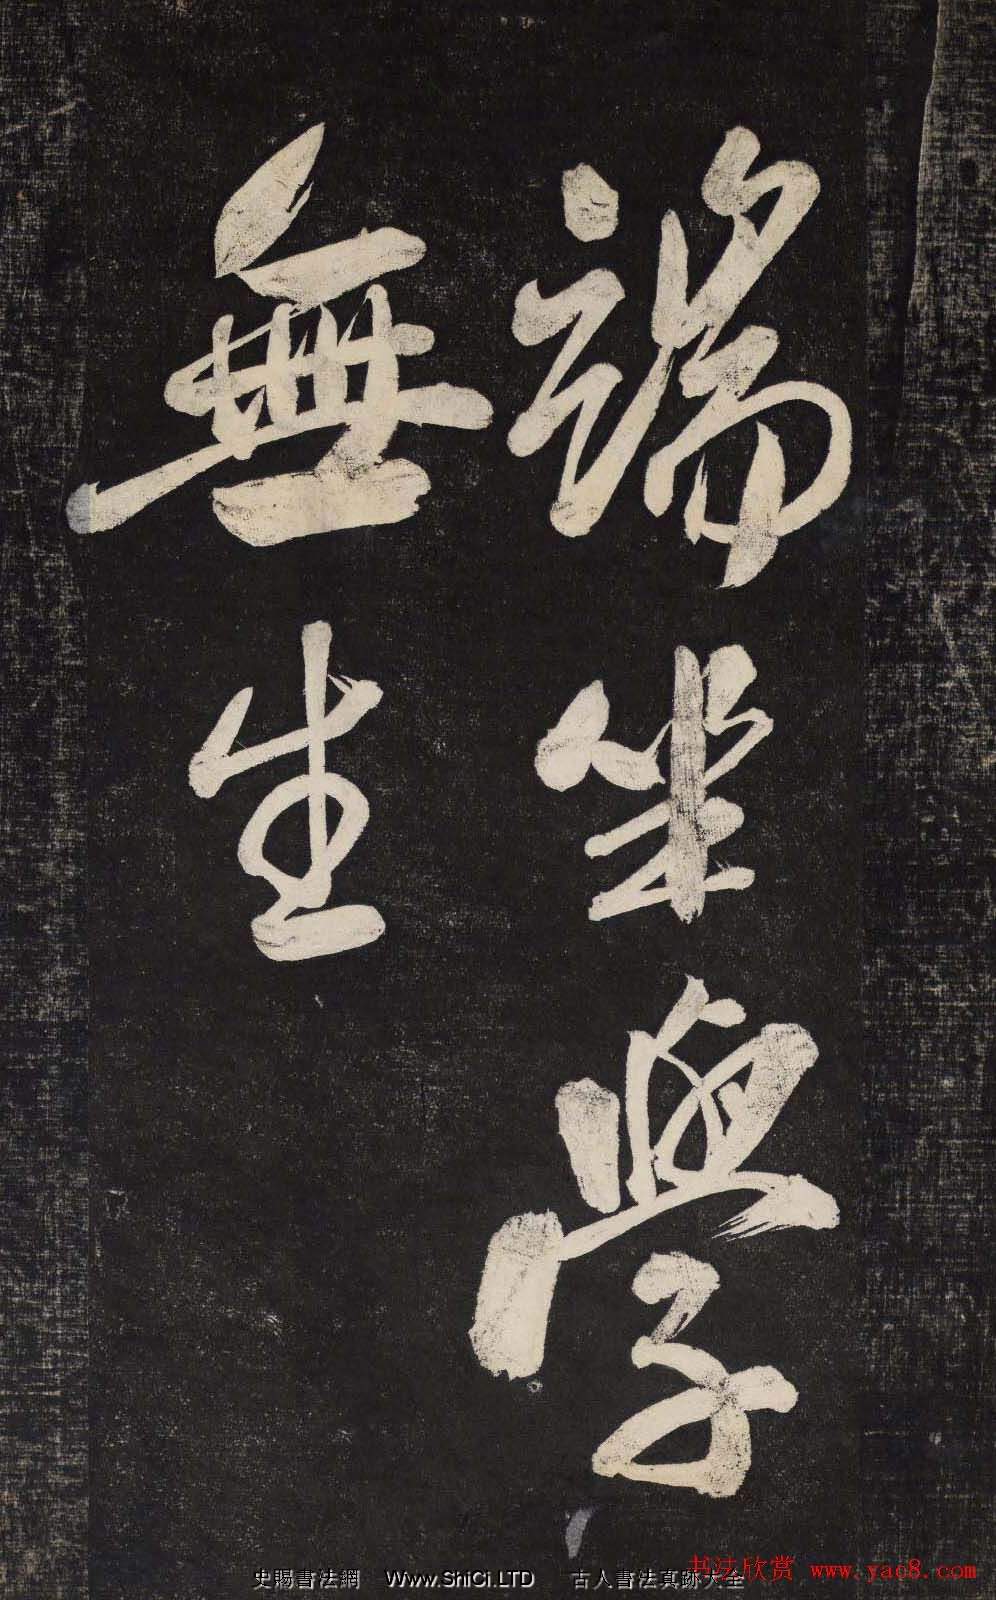 端坐學
無生
史賜書法網 Www.ShiCi.LTD 古人書法真跡大全
书法欣赏 www.yac8.com